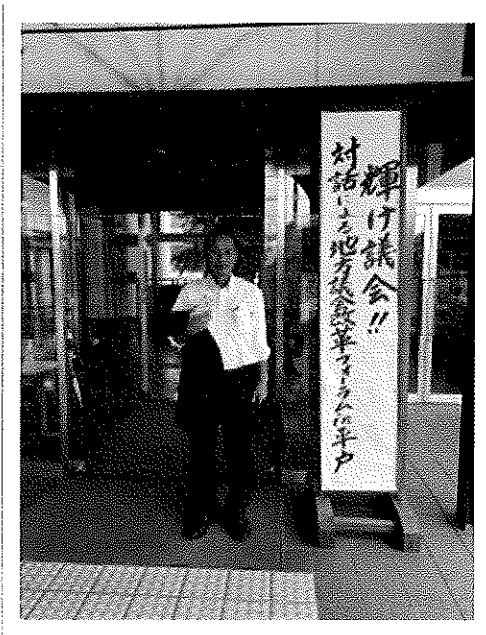 輝け議会!!
対話による地方議会改革フォーラムin平戸